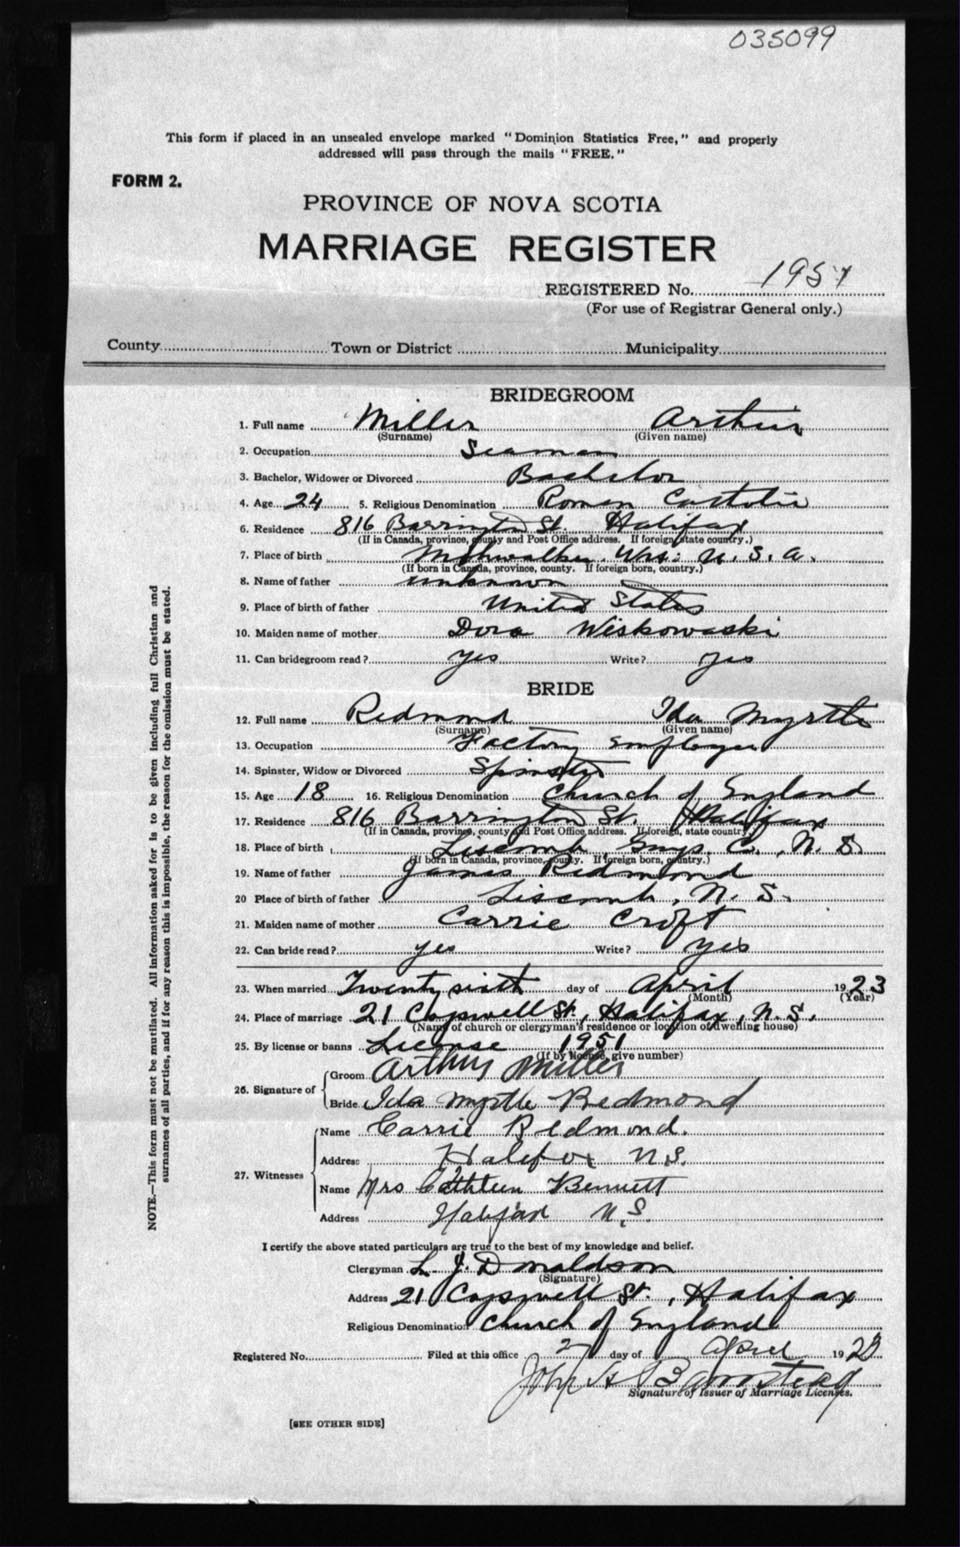 035099
This form if placed in an unsealed envelope marked "Dominion Statistics Free," and properly
addressed will pass through the mails "FREE."
FORM 2.
PROVINCE OF NOVA SCOTIA
MARRIAGE REGISTER
REGISTERED No. 1951
(For use of Registrar General only.)
County Town or District Municipality
BRIDEGROOM
1. Full name Miller Arthur
(Surname) (Given name)
2. Occupation Seaman
3. Bachelor, Widower or Divorced Bachelor
4. Age 24 5. Religious Denomination Roman Catholic
6. Residence 816 Barrington St. Halifax
(If in Canada, province, county and Post Office address. If foreign state country.)
7. Place of birth Wis: U.S.A.
(If born in Canada, province, county. If foreign born, country.)
8. Name of father unknown
9. Place of birth of father United States
10. Maiden name of mother Dora Wiskowaski
11. Can bridegroom read? yes Write? yes
BRIDE
12. Full name Redmond Ida Myrtle
(Surname) (Given name)
13. Occupation Factory Employee
14. Spinster, Widow or Divorced Spinster
15. Age 18 16. Religious Denomination Church of England
17. Residence 816 Barrington St. Halifax
(If in Canada, province, county and Post Office address. If foreign, state country)
18. Place of birth Liscomb, Guys. Co., N.S
(If born in Canada, province, county. If foreign born, country.)
19. Name of father James Redmond
20 Place of birth of father Liscomb, N.S.
21. Maiden name of mother Carrie Croft
22. Can bride read? yes Write? yes
23. When married Twenty sixth day of April 1923
(Month) (Year)
24. Place of marriage 21 Cogswell St., Halifax, N.S.
(Name of church or clergyman's residence or location of dwelling house)
25. By license or banns License 1951
(If by license, give number)
26. Signature of Groom Arthur Miller
Bride Ida Myrtle Redmond
27. Witnesses Name Carrie Redmond.
Address Halifax N.S.
Name Mrs Cathleen Bennett
Address Halifax N.S.
I certify the above stated particulars are true to the best of my knowledge and belief.
Clergyman L J. Donaldson
(Signature)
Address 21 Cogswell St., Halifax
Religious Denomination Church of England
Registered No. Filed at this office 27 day of April 1923
John H Barnstead
Signature of Issuer of Marriage Licenses.
[SEE OTHER SIDE]
NOTE.—This form must not be mutilated. All information asked for is to be given including full Christian and
surnames of all parties, and if for any reason this is impossible, the reason for the omission must be stated.